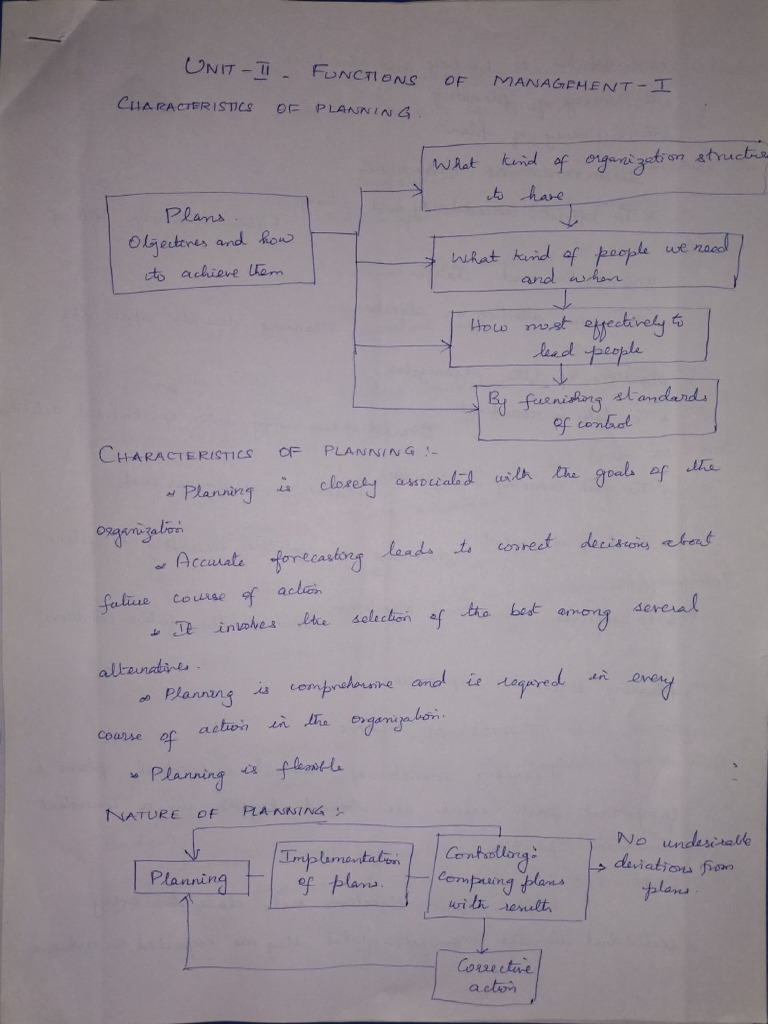 UNIT-II - FUNCTIONS OF MANAGEMENT-I
CHARACTERISTICS OF PLANNING.
What kind of organization structure
to have
Plans.
Objectives and how
to achieve them
What kind of people we need
and when
How most effectively to
lead people
By furnishing standards
of control
CHARACTERISTICS OF PLANNING :-
* Planning is closely associated with the goals of the
organization
* Accurate forecasting leads to correct decisions about
future course of action
* It involves the selection of the best among several
alternatives.
* Planning is comprehensive and is required in every
course of action in the organization.
* Planning is flexible
NATURE OF PLANNING :-
Planning
Implementation
of plans.
Controlling:
comparing plans
with results
No undesirable
deviations from
plans.
Corrective
action